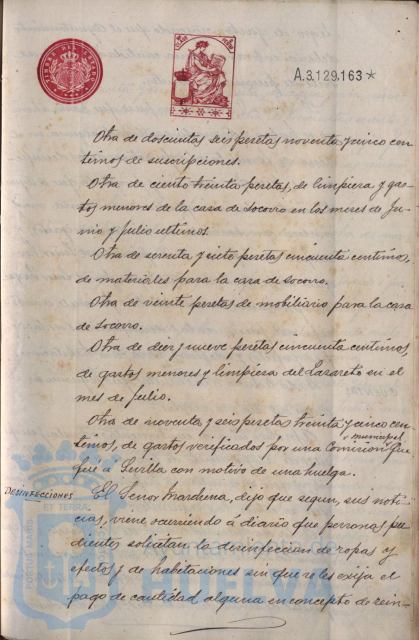 TIMBRE DEL ESTADO
A.3.129.163*
Otra de doscientas seis pesetas noventa y cinco cen-
timos de suscripciones.
Otra de ciento treinta pesetas, de limpieza y gas-
tos menores de la casa de socorro en los meses de Ju-
nio y Julio ultimos.
Otra de setenta y siete pesetas cincuenta centimos,
de materiales para la casa de socorro.
Otra de veinte pesetas de mobiliario para la casa
de socorro.
Otra de diez y nueve pesetas cincuenta centimos
de gastos menores y limpieza del Lazareto en el
mes de Julio.
Otra de noventa y seis pesetas treinta y cinco cen-
timos, de gastos verificados por una Comision municipal que
fué á Sevilla con motivo de una huelga.
DESINFECCIONES
El Señor Marchena, dijo que segun sus noti-
cias, viene ocurriendo á diario que personas pu-
dientes solicitan la desinfeccion de ropas y
efectos y de habitaciones sin que se les exija el
pago de cantidad alguna en concepto de rein-
PORTUS MARIS
ET TERRÆ